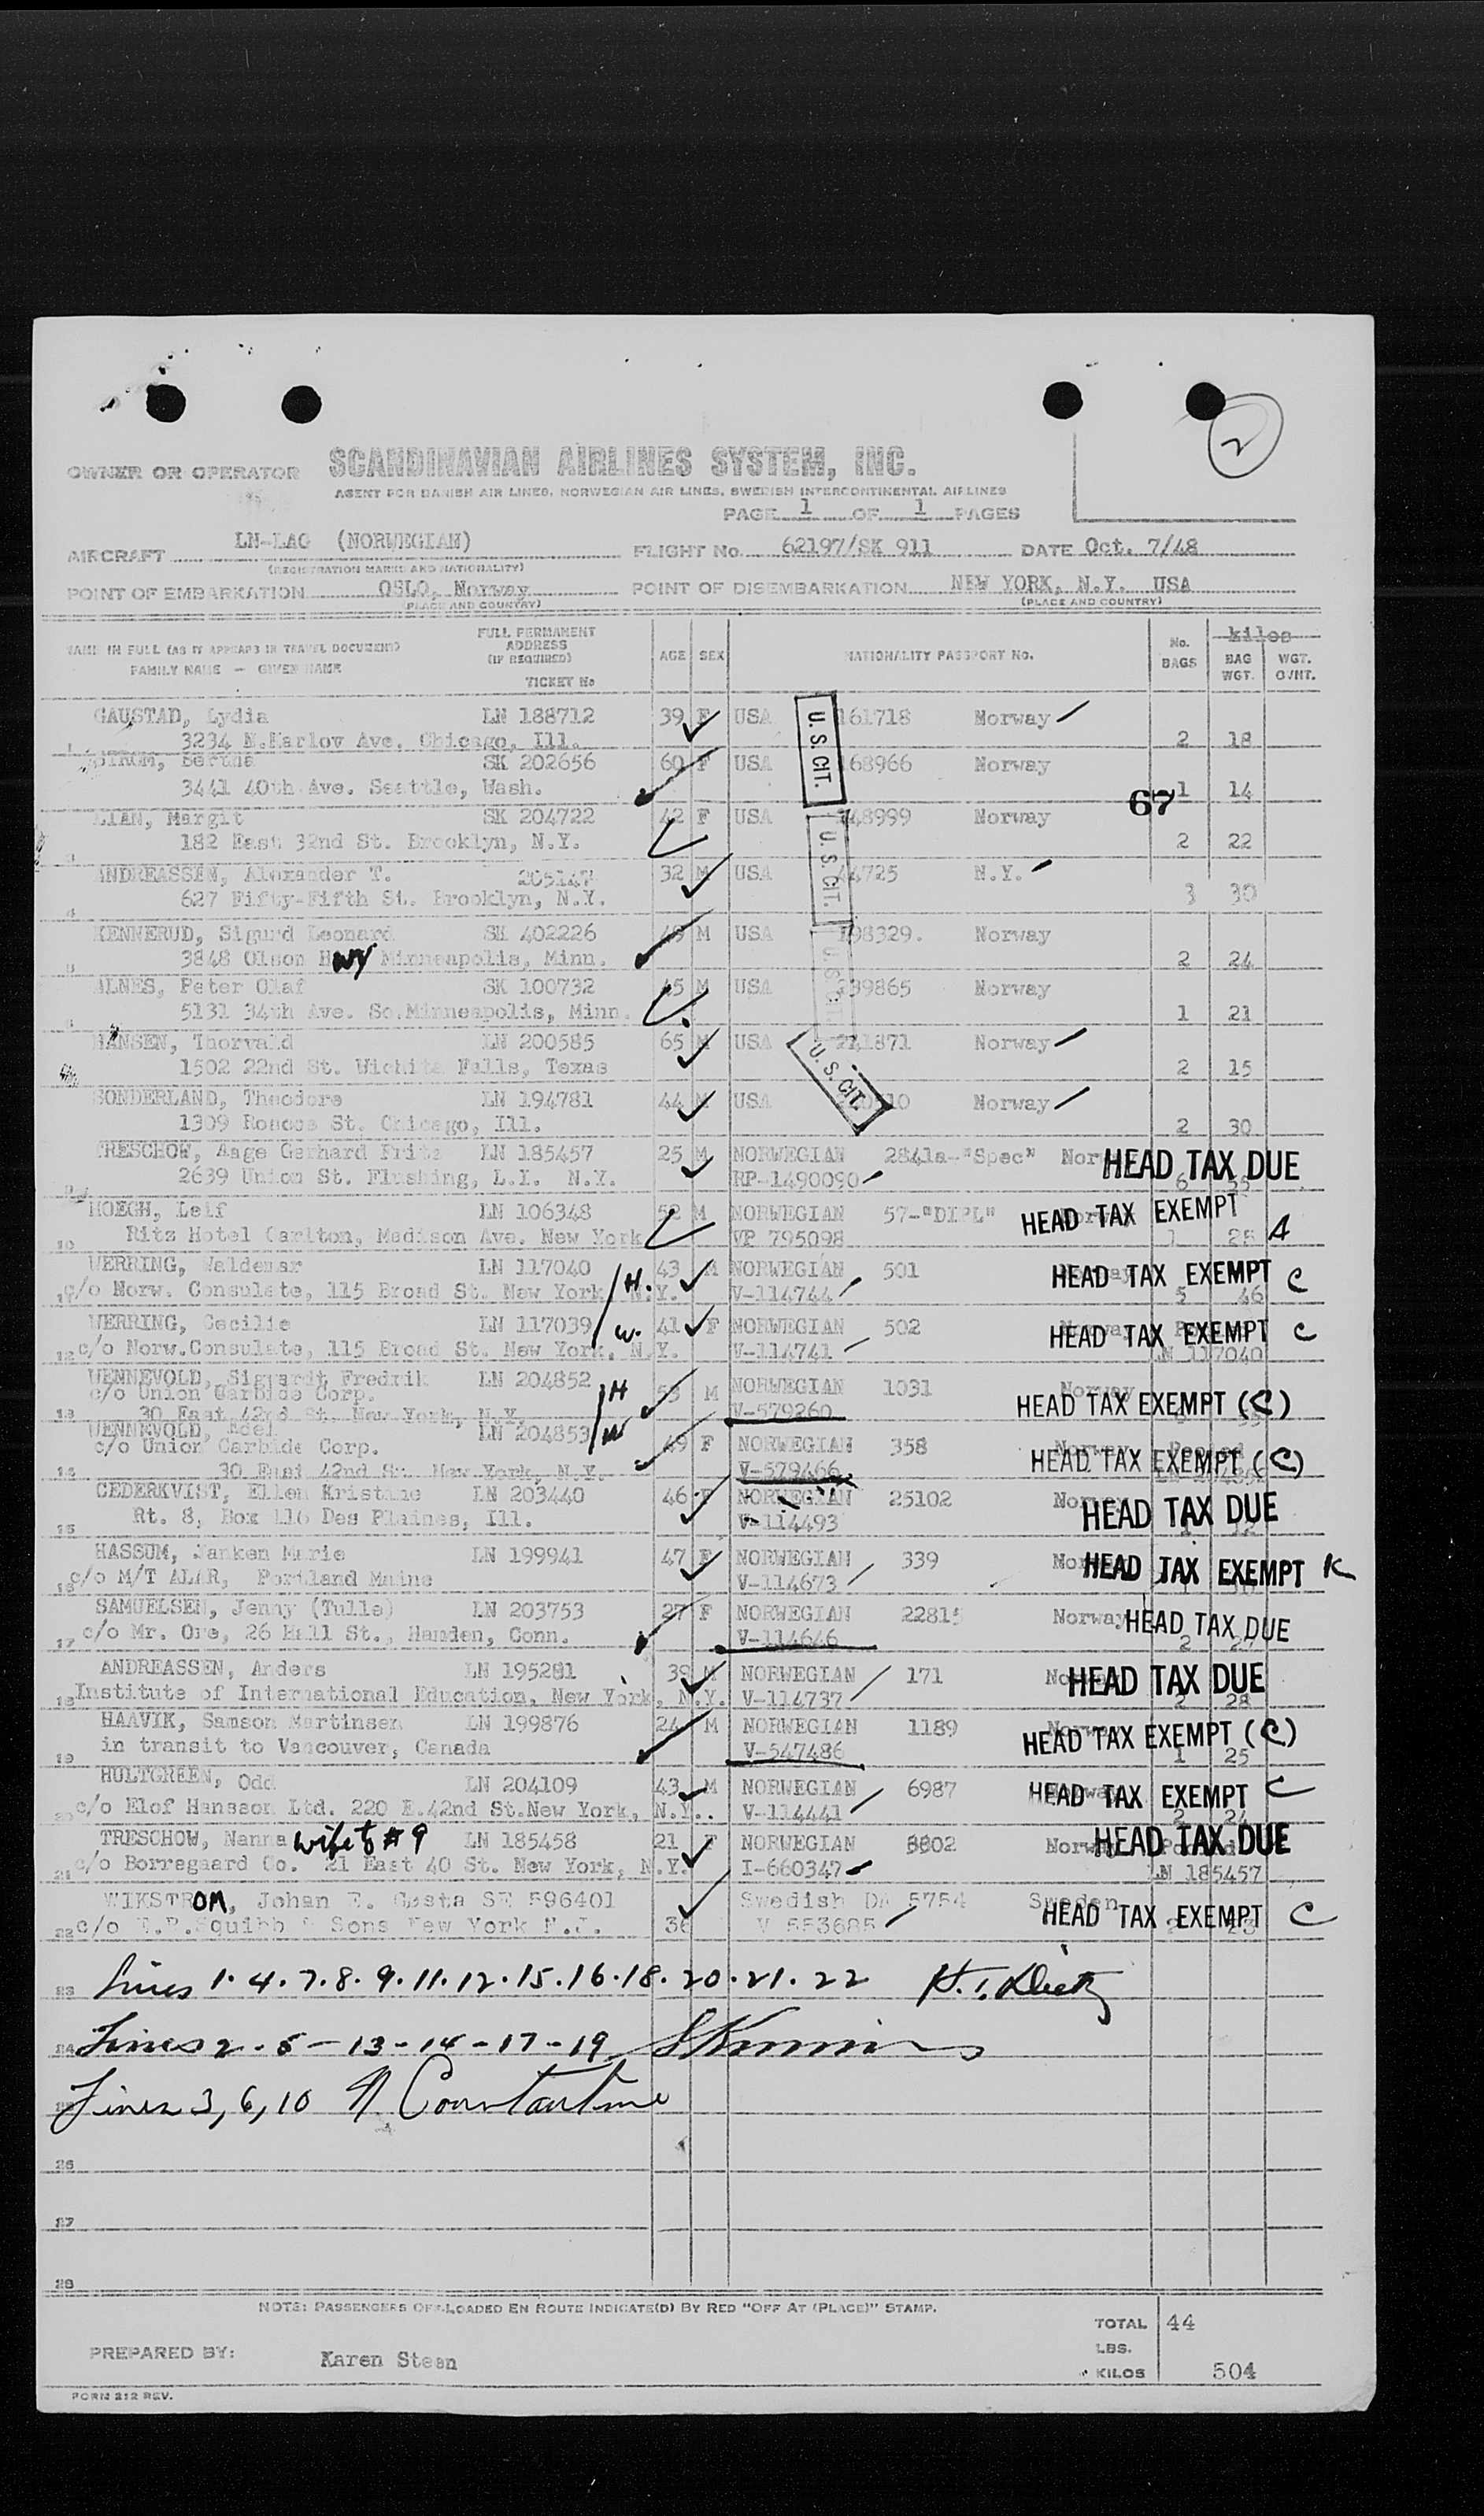 2
OWNER OR OPERATOR SCANDINAVIAN AIRLINES SYSTEM, INC.
AGENT FOR DANISH AIR LINES, NORWEGIAN AIR LINES, SWEDISH INTERCONTINENTAL AIRLINES
PAGE 1 OF 1 PAGES
AIRCRAFT LN-LAG (NORWEGIAN) FLIGHT No. 62197/SK 911 DATE Oct. 7/48
(REGISTRATION MARKS AND NATIONALITY)
POINT OF EMBARKATION OSLO, Norway POINT OF DISEMBARKATION NEW YORK, N.Y. USA
(PLACE AND COUNTRY) (PLACE AND COUNTRY)
NAME IN FULL (AS IT APPEARS IN TRAVEL DOCUMENT) FAMILY NAME — GIVEN NAME FULL PERMANENT ADDRESS (IF REQUIRED) TICKET No AGE SEX NATIONALITY PASSPORT No. No. BAGS kilos BAG WGT. WGT. O/HT.
GAUSTAD, Lydia LN 188712 39 F USA U.S. CIT. 161718 Norway
1 3234 N.Karlov Ave. Chicago, Ill. 2 18
Bertha SK 202656 60 F USA 68966 Norway
3441 40th Ave. Seattle, Wash. 1 14
67
LIAN, Margit SK 204722 42 F USA U.S. CIT. 48999 Norway
3 182 East 32nd St. Brooklyn, N.Y. 2 22
ANDREASSEN, Alexander T. 205147 32 M USA 4725 N.Y.
4 627 Fifty-Fifth St. Brooklyn, N.Y. 3 30
KENNERUD, Sigurd Leonard SK 402226 49 M USA U.S. CIT. 98329. Norway
5 3848 Olson Hwy Minneapolis, Minn. 2 24
ALNES, Peter Olaf SK 100732 45 M USA 39865 Norway
5131 34th Ave. So.Minneapolis, Minn. 1 21
HANSEN, Thorvald LN 200585 65 M USA 211871 Norway
1502 22nd St. Wichita Falls, Texas U.S. CIT. 2 15
SONDERLAND, Theodore LN 194781 44 M USA 10 Norway
1309 Roscoe St. Chicago, Ill. 2 30
TRESCHOW, Aage Gerhard Fritz LN 185457 25 M NORWEGIAN 2841a-"Spec" Nor HEAD TAX DUE
9 2639 Union St. Flushing, L.I. N.Y. RP-1490090 6 35
HOEGH, Leif LN 106348 52 M NORWEGIAN 57-"DIPL" HEAD TAX EXEMPT
10 Ritz Hotel Carlton, Madison Ave. New York VP 795098 1 28 A
WERRING, Waldemar LN 117040 H. 43 M NORWEGIAN 501 HEAD TAX EXEMPT C
11 c/o Norw. Consulate, 115 Broad St. New York, N.Y. V-114744 5 46
WERRING, Cecilie LN 117039 W. 41 F NORWEGIAN 502 HEAD TAX EXEMPT C
12 c/o Norw.Consulate, 115 Broad St. New York, N.Y. V-114741 LN 117040
WENNEVOLD, Sigvardt Fredrik LN 204852 H 53 M NORWEGIAN 1031 Norway
c/o Union Carbide Corp. HEAD TAX EXEMPT (C)
13 30 East 42nd St. New York, N.Y. V-579260
WENNEVOLD, Edel LN 204853 W 49 F NORWEGIAN 358 Norway
c/o Union Carbide Corp. HEAD TAX EXEMPT (C)
14 30 East 42nd St. New York, N.Y. V-579466
CEDERKVIST, Ellen Kristine LN 203440 46 F NORWEGIAN 25102 Norway HEAD TAX DUE
15 Rt. 8, Box 116 Des Plaines, Ill. V-114493
HASSUM, Janken Marie LN 199941 47 F NORWEGIAN 339 Nor HEAD TAX EXEMPT K
16 c/o M/T ALAR, Portland Maine V-114673
SAMUELSEN, Jenny (Tulle) LN 203753 27 F NORWEGIAN 22815 Norway HEAD TAX DUE
17 c/o Mr. Ore, 26 Hall St., Hamden, Conn. V-114646 2
ANDREASSEN, Anders LN 195281 38 M NORWEGIAN 171 No HEAD TAX DUE
18 Institute of International Education, New York, N.Y. V-114737 2 28
HAAVIK, Samson Martinsen LN 199876 24 M NORWEGIAN 1189 Norway HEAD TAX EXEMPT (C)
19 in transit to Vancouver, Canada V-547486 1 25
HULTGREEN, Odd LN 204109 43 M NORWEGIAN 6987 Norway HEAD TAX EXEMPT C
20 c/o Elof Hansson Ltd. 220 E.42nd St.New York, N.Y.. V-114441 2 24
TRESCHOW, Nanna wife to #9 LN 185458 21 F NORWEGIAN 8802 Norway HEAD TAX DUE
21 c/o Borregaard Co. 21 East 40 St. New York, N.Y. I-660347 LN 185457
WIKSTROM, Johan E. Gosta SE 596401 Swedish DA 5754 Sweden
22 c/o E.R.Squibb & Sons New York N.J. 36 V 553685 HEAD TAX EXEMPT C
23 Lines 1.4.7.8.9.11.12.15.16.18.20.21.22
24 Lines 2.5-13-14-17-19
Lines 3, 6, 10 N. Constantine
26
27
28
NOTE: PASSENGERS OFF-LOADED EN ROUTE INDICATE(D) BY RED "OFF AT (PLACE)" STAMP.
TOTAL 44
LBS.
PREPARED BY: Karen Steen
KILOS 504
FORM 212 REV.